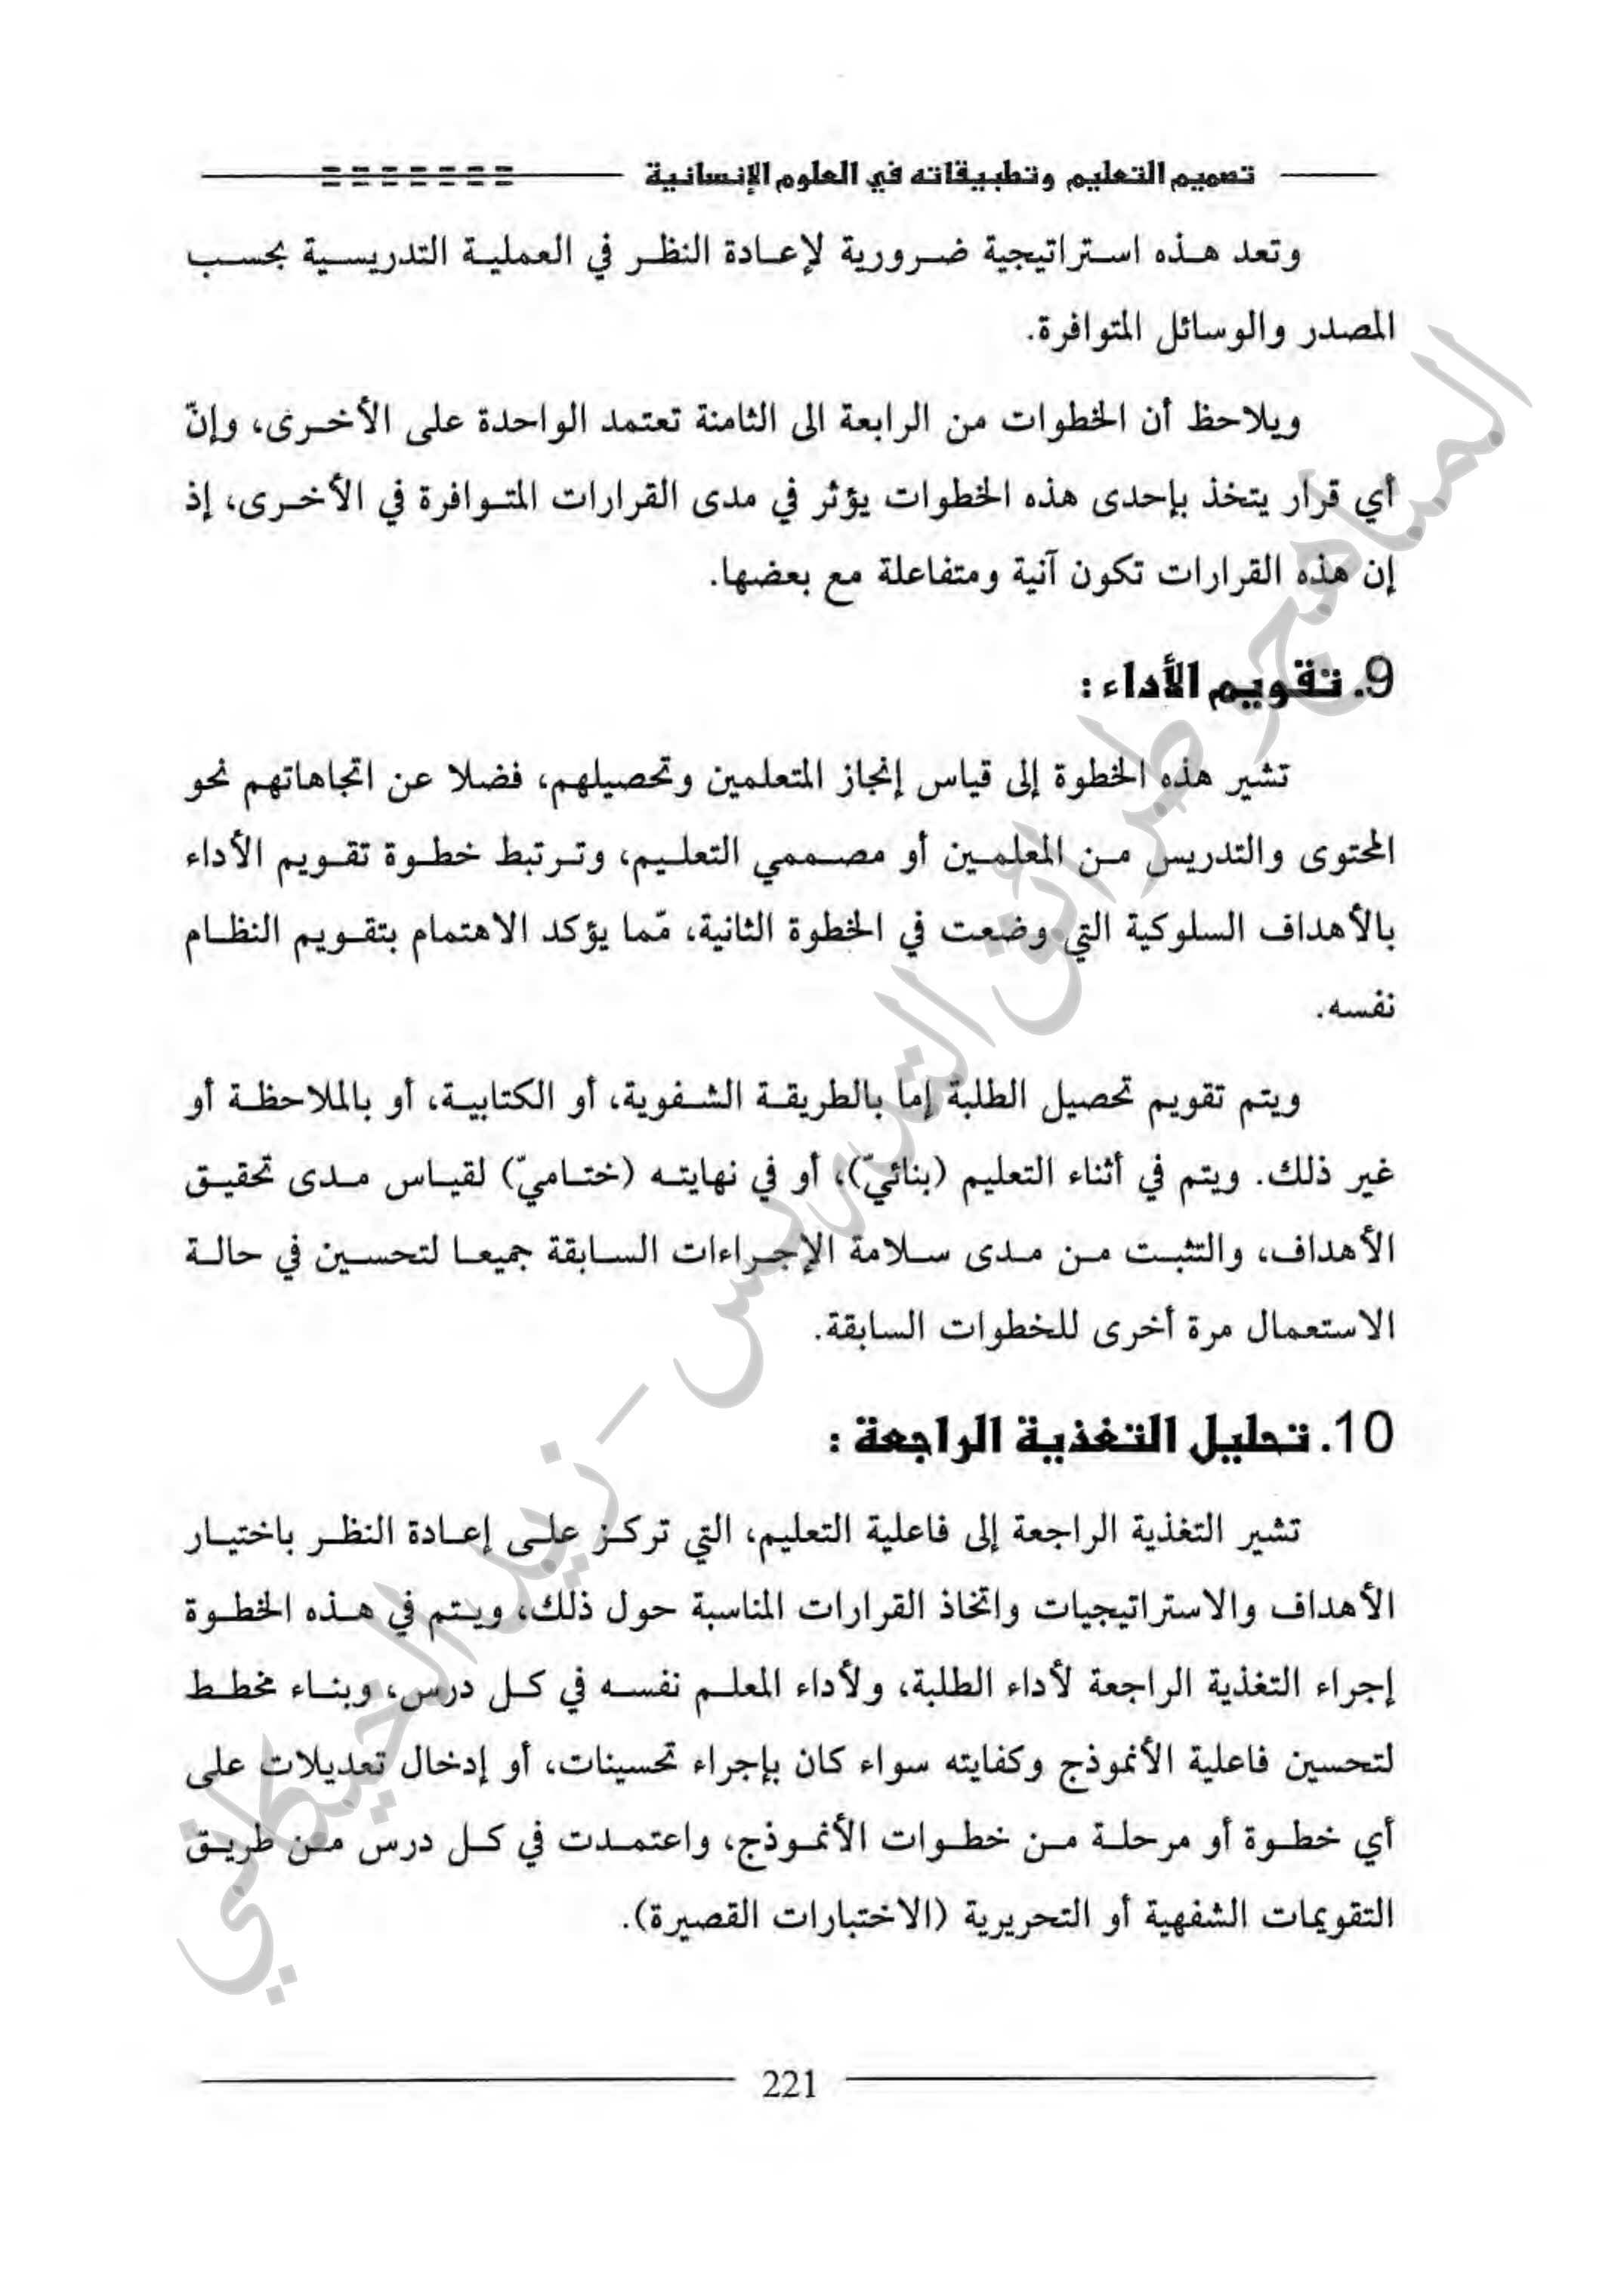 تصميم التعليم وتطبيقاته في العلوم الإنسانية
وتعد هذه استراتيجية ضرورية لإعادة النظر في العملية التدريسية بحسب
المصدر والوسائل المتوافرة.
ويلاحظ أن الخطوات من الرابعة الى الثامنة تعتمد الواحدة على الأخرى، وإنّ
أي قرار يتخذ بإحدى هذه الخطوات يؤثر في مدى القرارات المتوافرة في الأخرى، إذ
إن هذه القرارات تكون آنية ومتفاعلة مع بعضها.
9. تقويم الأداء :
تشير هذه الخطوة إلى قياس إنجاز المتعلمين وتحصيلهم، فضلا عن اتجاهاتهم نحو
المحتوى والتدريس من المعلمين أو مصممي التعليم، وترتبط خطوة تقويم الأداء
بالأهداف السلوكية التي وضعت في الخطوة الثانية، مّما يؤكد الاهتمام بتقويم النظام
نفسه.
ويتم تقويم تحصيل الطلبة إما بالطريقة الشفوية، أو الكتابية، أو بالملاحظة أو
غير ذلك. ويتم في أثناء التعليم (بنائيّ)، أو في نهايته (ختاميّ) لقياس مدى تحقيق
الأهداف، والتثبت من مدى سلامة الإجراءات السابقة جميعا لتحسين في حالة
الاستعمال مرة أخرى للخطوات السابقة.
10. تحليل التغذية الراجعة :
تشير التغذية الراجعة إلى فاعلية التعليم، التي تركز على إعادة النظر باختيار
الأهداف والاستراتيجيات واتخاذ القرارات المناسبة حول ذلك، ويتم في هذه الخطوة
إجراء التغذية الراجعة لأداء الطلبة، ولأداء المعلم نفسه في كل درس، وبناء مخطط
لتحسين فاعلية الأنموذج وكفايته سواء كان بإجراء تحسينات، أو إدخال تعديلات على
أي خطوة أو مرحلة من خطوات الأنموذج، واعتمدت في كل درس من طريق
التقويمات الشفهية أو التحريرية (الاختبارات القصيرة).
221
المناهج وطرائق التدريس - زيد الحيكاني